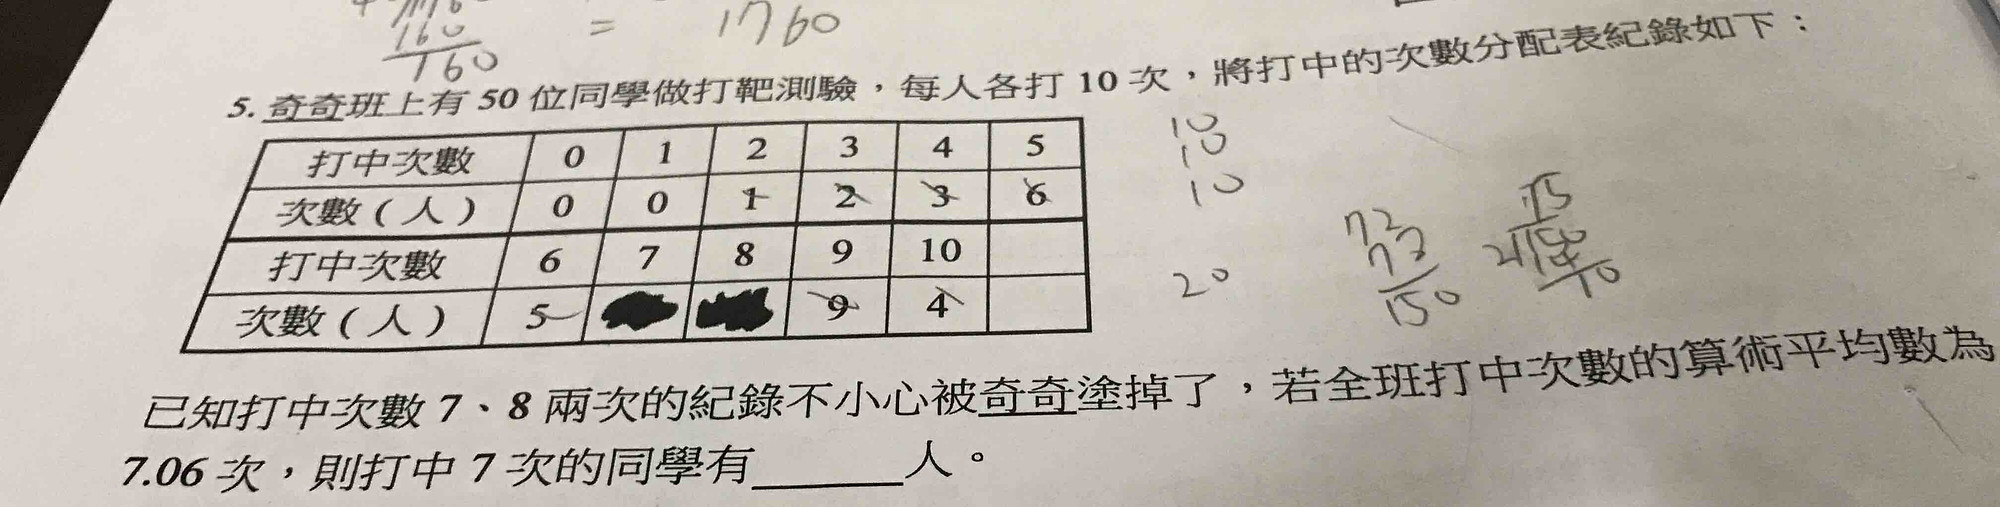 160
160
= 1760
5. 奇奇班上有 50 位同學做打靶測驗，每人各打 10 次，將打中的次數分配表紀錄如下：
打中次數 0 1 2 3 4 5
次數（人） 0 0 1 2 3 6
打中次數 6 7 8 9 10
次數（人） 5 9 4
10
10
10
20
72
150
已知打中次數 7、8 兩次的紀錄不小心被奇奇塗掉了，若全班打中次數的算術平均數為
7.06 次，則打中 7 次的同學有______人。